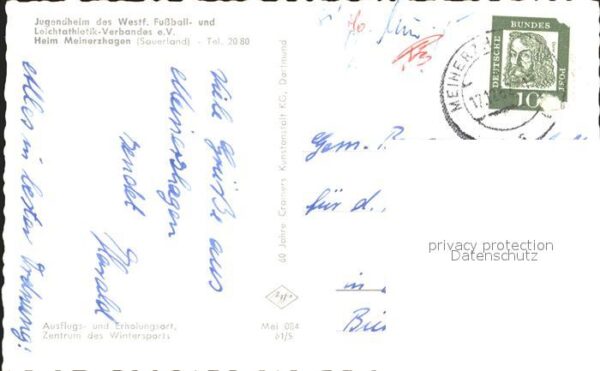 Jugendheim des Westf. Fußball- und
Leichtathletik-Verbandes e.V.
Heim Meinerzhagen (Sauerland) - Tel. 20 80
Viele Grüße aus
Meinerzhagen
sendet
Harald
Alles in bester Ordnung!
60 Jahre Cramers Kunstanstalt KG, Dortmund
Ausflugs- und Erholungsort,
Zentrum des Wintersports
Mei 084
61/5
DEUTSCHE
BUNDES
POST
10
MEINERZ
Gem.
für d.
in
privacy protection
Datenschutz